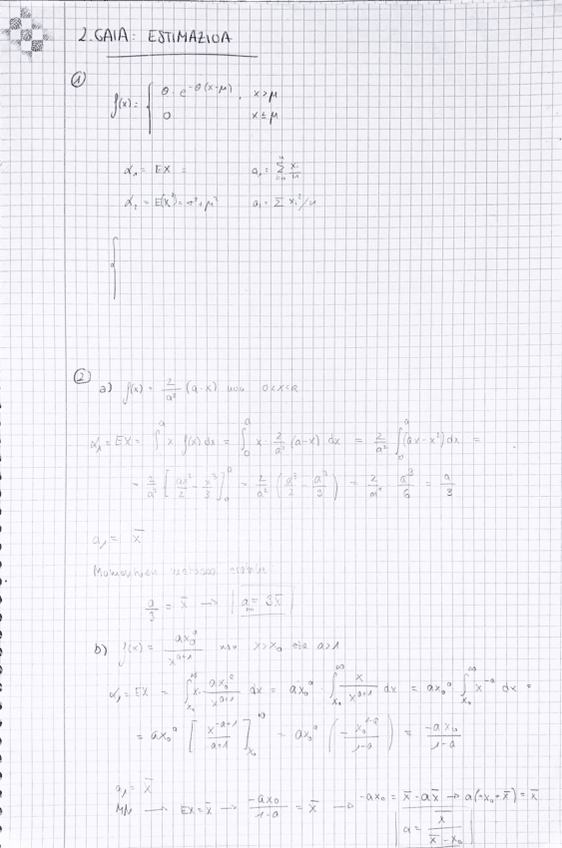 2. GAIA: ESTIMAZIOA
①
f(x) = { θ · e^{-θ(x-μ)}, x>μ
0 x≤μ
α₁ = EX = a₁ = Σ_{i=1}^{n} xᵢ/n
α₂ = E(X²) = σ²+μ² a₂ = Σ xᵢ²/n
{
②
a) f(x) = 2/a² (a-x) non 0<x<a
α₁ = EX = ∫₀^a x f(x) dx = ∫₀^a x · 2/a² (a-x) dx = 2/a² ∫₀^a (ax-x²) dx =
= 2/a² [ax²/2 - x³/3]₀^a = 2/a² (a³/2 - a³/3) = 2/a² · a³/6 = a/3
a₁ = x̄
a/3 = x̄ → a = 3x̄
b) f(x) = ax₀^a / x^{a+1} non x>x₀ eta a>1
α₁ = EX = ∫_{x₀}^∞ x · ax₀^a / x^{a+1} dx = ax₀^a · ∫_{x₀}^∞ x / x^{a+1} dx = ax₀^a ∫_{x₀}^∞ x^{-a} dx =
= ax₀^a [x^{-a+1} / a+1]_{x₀}^∞ = ax₀^a (- x₀^{1-a} / 1-a) = -ax₀ / 1-a
a₁ = x̄
MM → EX = x̄ → -ax₀ / 1-a = x̄ → -ax₀ = x̄ - ax̄ → a(-x₀+x̄) = x̄
a = x̄ / x̄-x₀